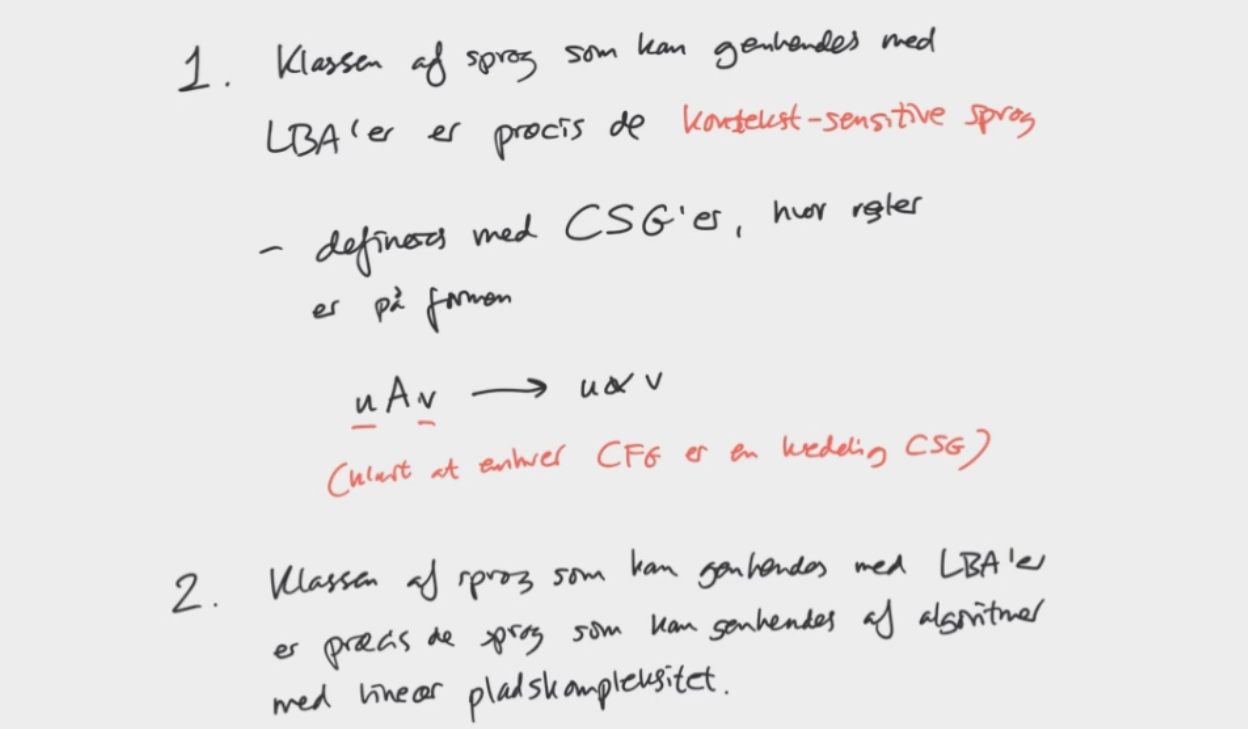 1. Klassen af sprog som kan genkendes med
LBA'er er præcis de kontekst-sensitive sprog
- defineres med CSG'er, hvor regler
er på formen
uAv → uαv
(klart at enhver CFG er en CSG)
2. Klassen af sprog som kan genkendes med LBA'er
er præcis de sprog som kan genkendes af algoritmer
med lineær pladskompleksitet.